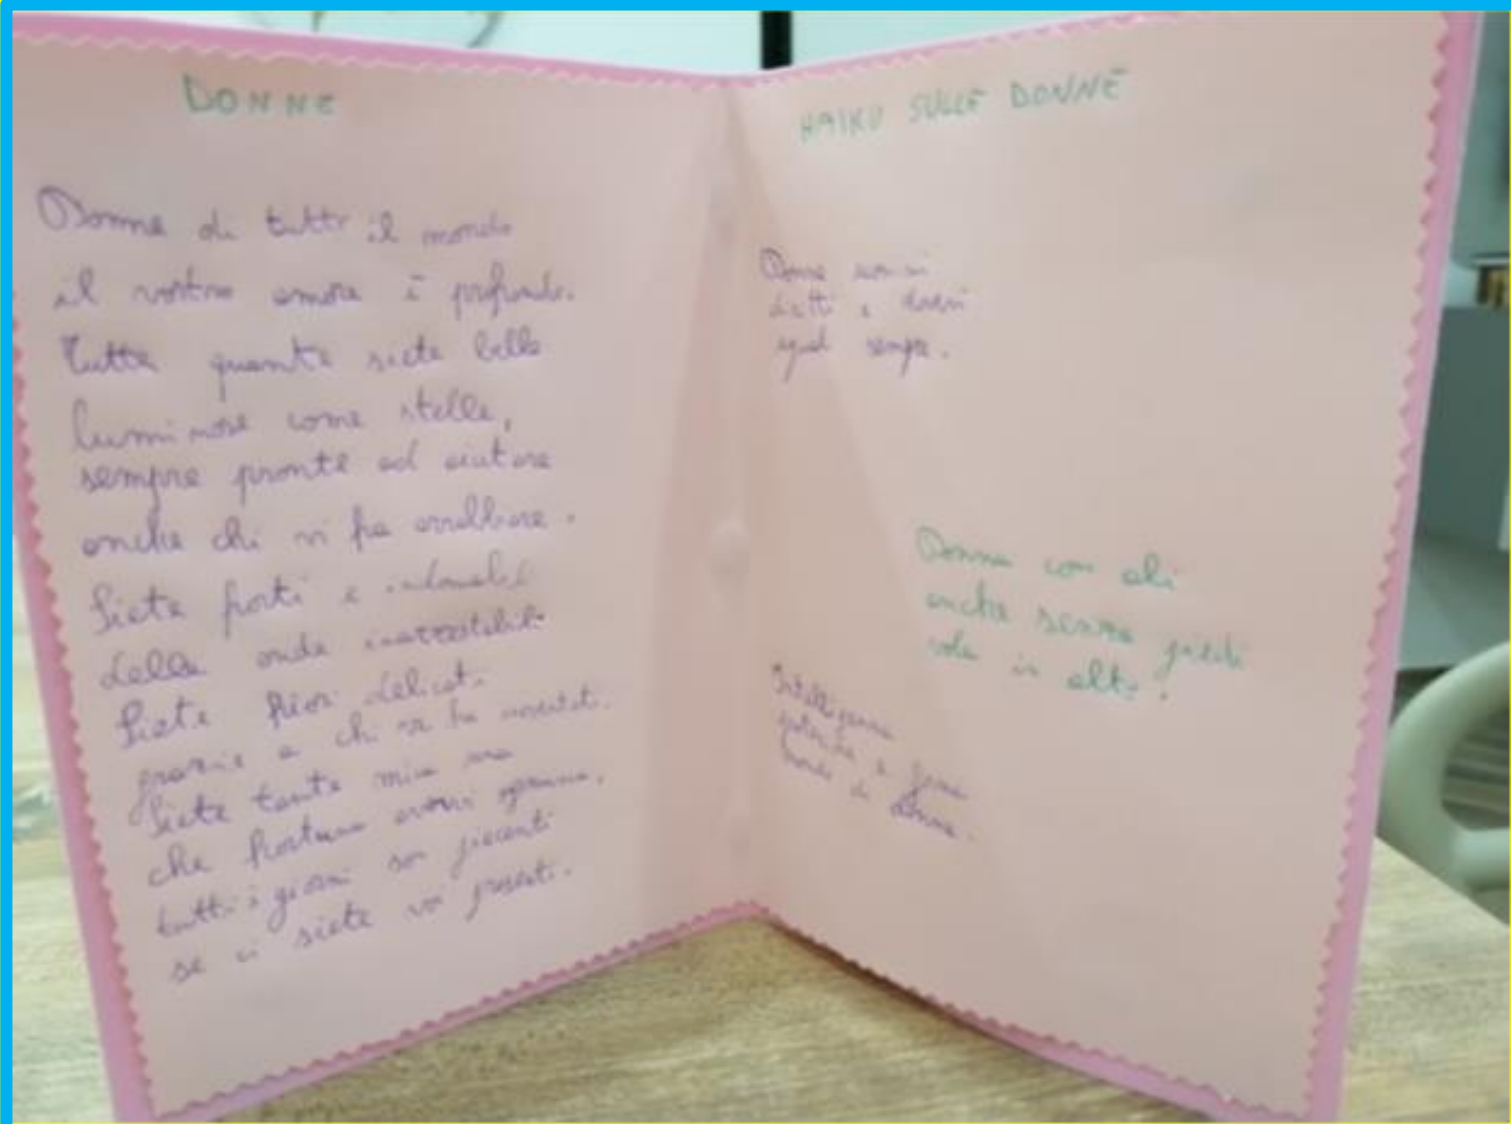 DONNE
Donne di tutto il mondo
il vostro amore è profondo.
Tutte quante siete belle
luminose come stelle,
sempre pronte ad aiutare
anche chi vi fa arrabbiare.
Siete forti e indomabili
delle onde inarrestabili
Siete fiori delicati
grazie a chi vi ha
Siete tante mica una
che fortuna avervi ognuna,
tutti i giorni son piacenti
se ci siete voi presenti.
HAIKU SULLE DONNE
Donne uomini
diritti e doveri
uguali sempre.
Donna con ali
anche senza piedi
vola in alto.
Intelligenza
potenza e
mondo di donne.